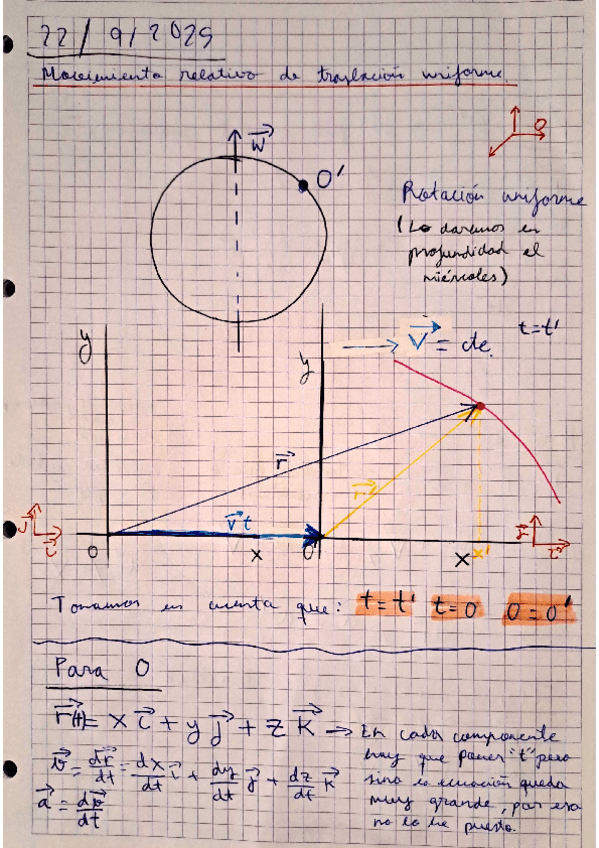 22/9/2025
Movimiento relativo de traslación uniforme.
w⃗
O'
O
Rotación uniforme
(Lo daremos en
profundidad el
miércoles)
y
y
V⃗ = cte.
t=t'
r⃗
r⃗'
v⃗t
j⃗
i⃗
O
x
O'
x
x'
j⃗'
i⃗'
Tomamos en cuenta que: t=t' t=0 O=O'
Para O
r⃗(t)= x i⃗ + y j⃗ + z k⃗ → En cada componente
hay que poner "t" pero
sino la ecuación queda
muy grande, por eso
no lo he puesto.
v⃗ = dr⃗/dt = dx/dt i⃗ + dy/dt j⃗ + dz/dt k⃗
a⃗ = dv⃗/dt